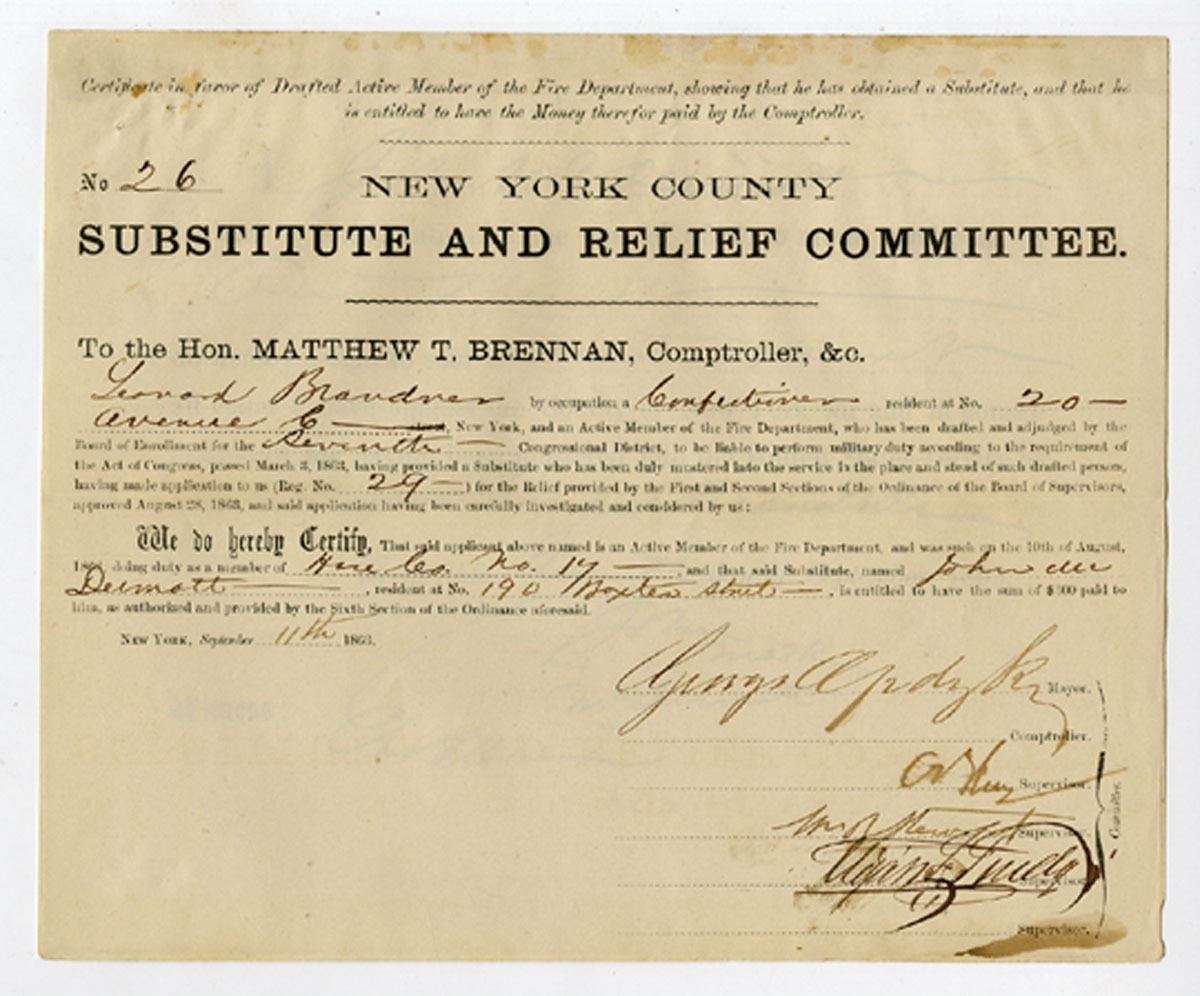 Certificate in favor of Drafted Active Member of the Fire Department, showing that he has obtained a Substitute, and that he
is entitled to have the Money therefor paid by the Comptroller.
No 26
NEW YORK COUNTY
SUBSTITUTE AND RELIEF COMMITTEE.
To the Hon. MATTHEW T. BRENNAN, Comptroller, &c.
Leonard Brandner by occupation a Confectioner resident at No. 20
Avenue C, New York, and an Active Member of the Fire Department, who has been drafted and adjudged by the
Board of Enrollment for the Seventh Congressional District, to be liable to perform military duty according to the requirement of
the Act of Congress, passed March 3, 1863, having provided a Substitute who has been duly mustered into the service in the place and stead of such drafted person,
having made application to us (Reg. No. 29) for the Relief provided by the First and Second Sections of the Ordinance of the Board of Supervisors,
approved August 28, 1863, and said application having been carefully investigated and considered by us:
We do hereby Certify, That said applicant above named is an Active Member of the Fire Department, and was such on the 10th of August,
1863, doing duty as a member of Hose Co. No. 17, and that said Substitute, named John Mc
Dermott, resident at No. 190 Baxter Street, is entitled to have the sum of $300 paid to
him, as authorized and provided by the Sixth Section of the Ordinance aforesaid.
NEW YORK, September 11th 1863.
George Opdyke Mayor.
Comptroller.
Supervisor.
Wm R Stewart Supervisor.
Supervisor.
Supervisor.
Committee.